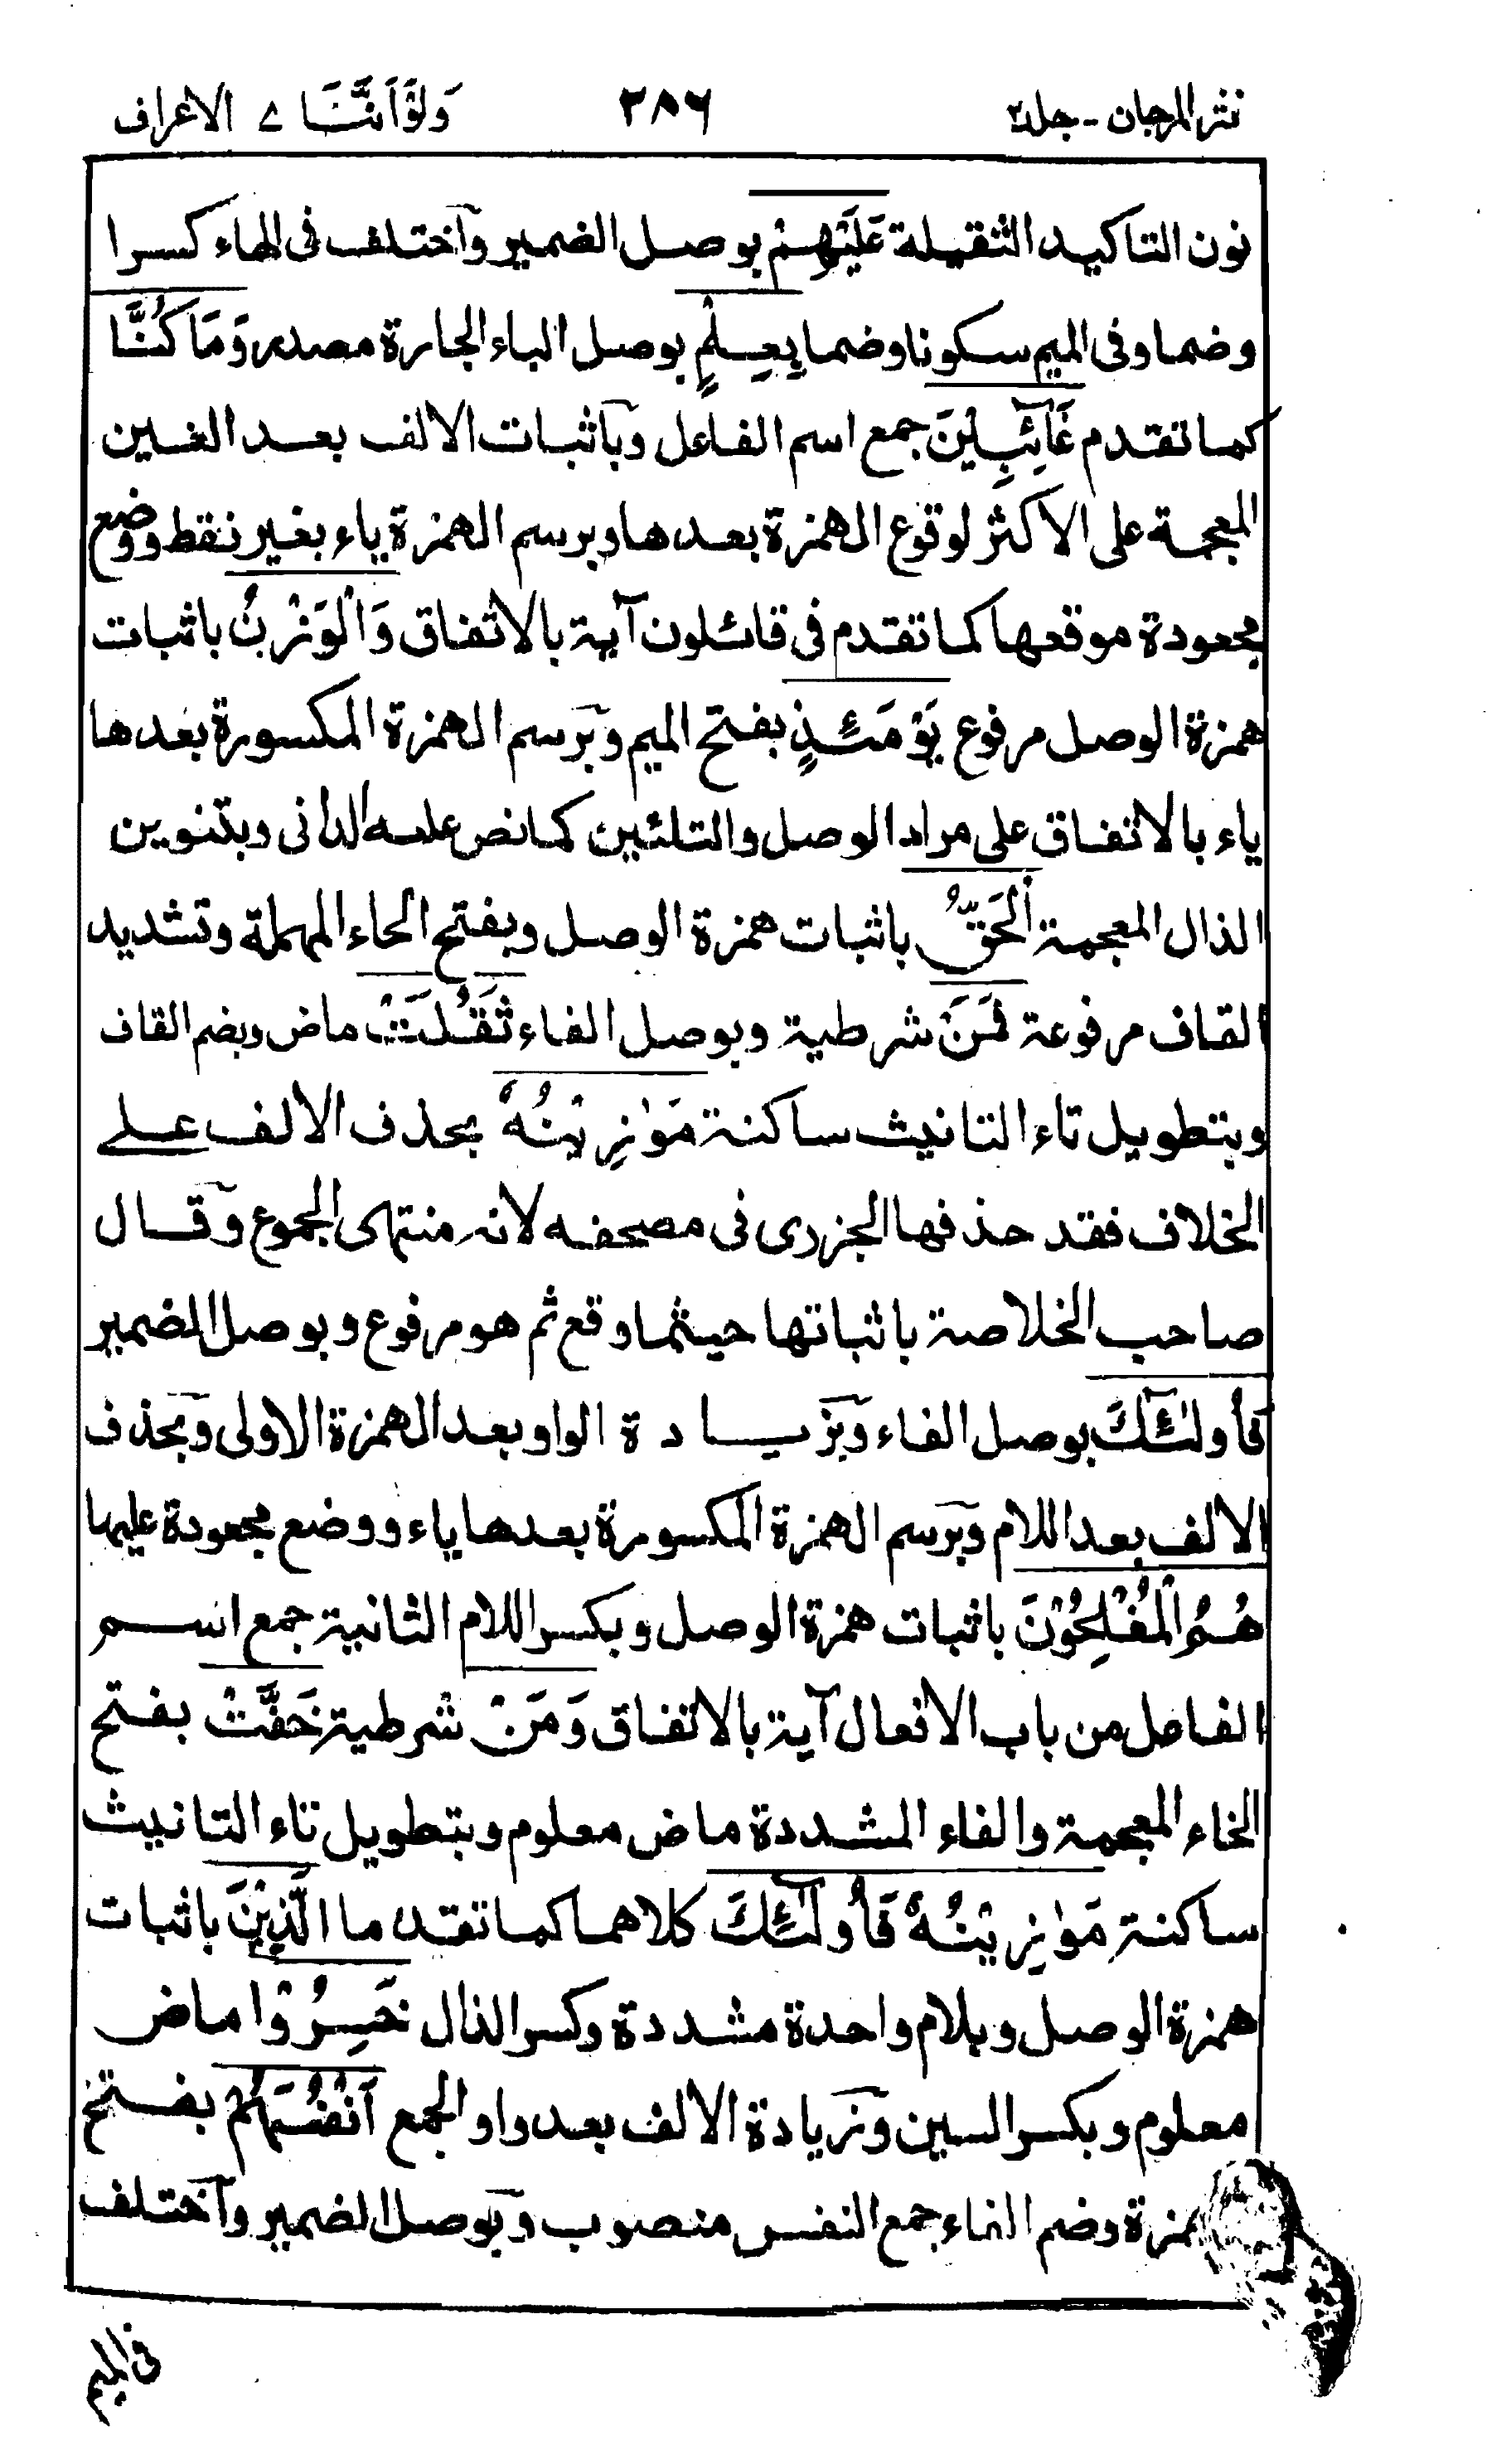 نثر المرجان - جلد٢ ٣٨٦ وَلَوْ أَنَّنَا ٧ الاعراف
نون التاكيد الثقيلة عَلَيْهِمْ بوصل الضمير وآختلف فى الهاء كسرا
وضما وفى الميم سكونا وضما بِعِلْمٍ بوصل الباء الجارة مصدر وَمَا كُنَّا
كما تقدم غَآئِبِيْنَ جمع اسم الفاعل وبآثبات الالف بعد الغين
المعجمة على الاكثر لوقوع الهمزة بعدها وبرسم الهمزة ياء بغير نقط ووضع
مجعودة موقعها كما تقدم فى قائلون آية بالاتفاق وَالْوَزْنُ باثبات
همزة الوصل مرفوع يَوْمَئِذٍ بفتح الميم وبرسم الهمزة المكسورة بعدها
ياء بالاتفاق على مراد الوصل والتلئين كما نص عليه الدانى وبتنوين
الذال المعجمة الْحَقُّ باثبات همزة الوصل وبفتح الحاء المهملة وتشديد
القاف مرفوعة فَمَنْ شرطية وبوصل الفاء ثَقُلَتْ ماض وبضم القاف
وبتطويل تاء التانيث ساكنة مَوٰزِيْنُهٗ بحذف الالف على
الخلاف فقد حذفها الجزرى فى مصحفه لانه منتهى الجموع وقال
صاحب الخلاصة باثباتها حيثما وقع ثم هو مرفوع وبوصل الضمير
فَأُولٰٓئِكَ بوصل الفاء وبزيادة الواو بعد الهمزة الاولى وبحذف
الالف بعد اللام وبرسم الهمزة المكسورة بعدها ياء ووضع مجعودة عليها
هُمُ الْمُفْلِحُوْنَ باثبات همزة الوصل وبكسر اللام الثانية جمع اسم
الفاعل من باب الافعال آية بالاتفاق وَمَنْ شرطية خَفَّتْ بفتح
الخاء المعجمة والفاء المشددة ماض معلوم وبتطويل تاء التانيث
ساكنة مَوٰزِيْنُهٗ فَأُولٰٓئِكَ كلاهما كما تقدما الَّذِيْنَ باثبات
همزة الوصل وبلام واحدة مشددة وكسر الذال خَسِرُوْا ماض
معلوم وبكسر السين وزيادة الالف بعد واو الجمع أَنْفُسَهُمْ بفتح
همزة وضم الفاء جمع النفس منصوب وبوصل الضمير وآختلف
فى الميم